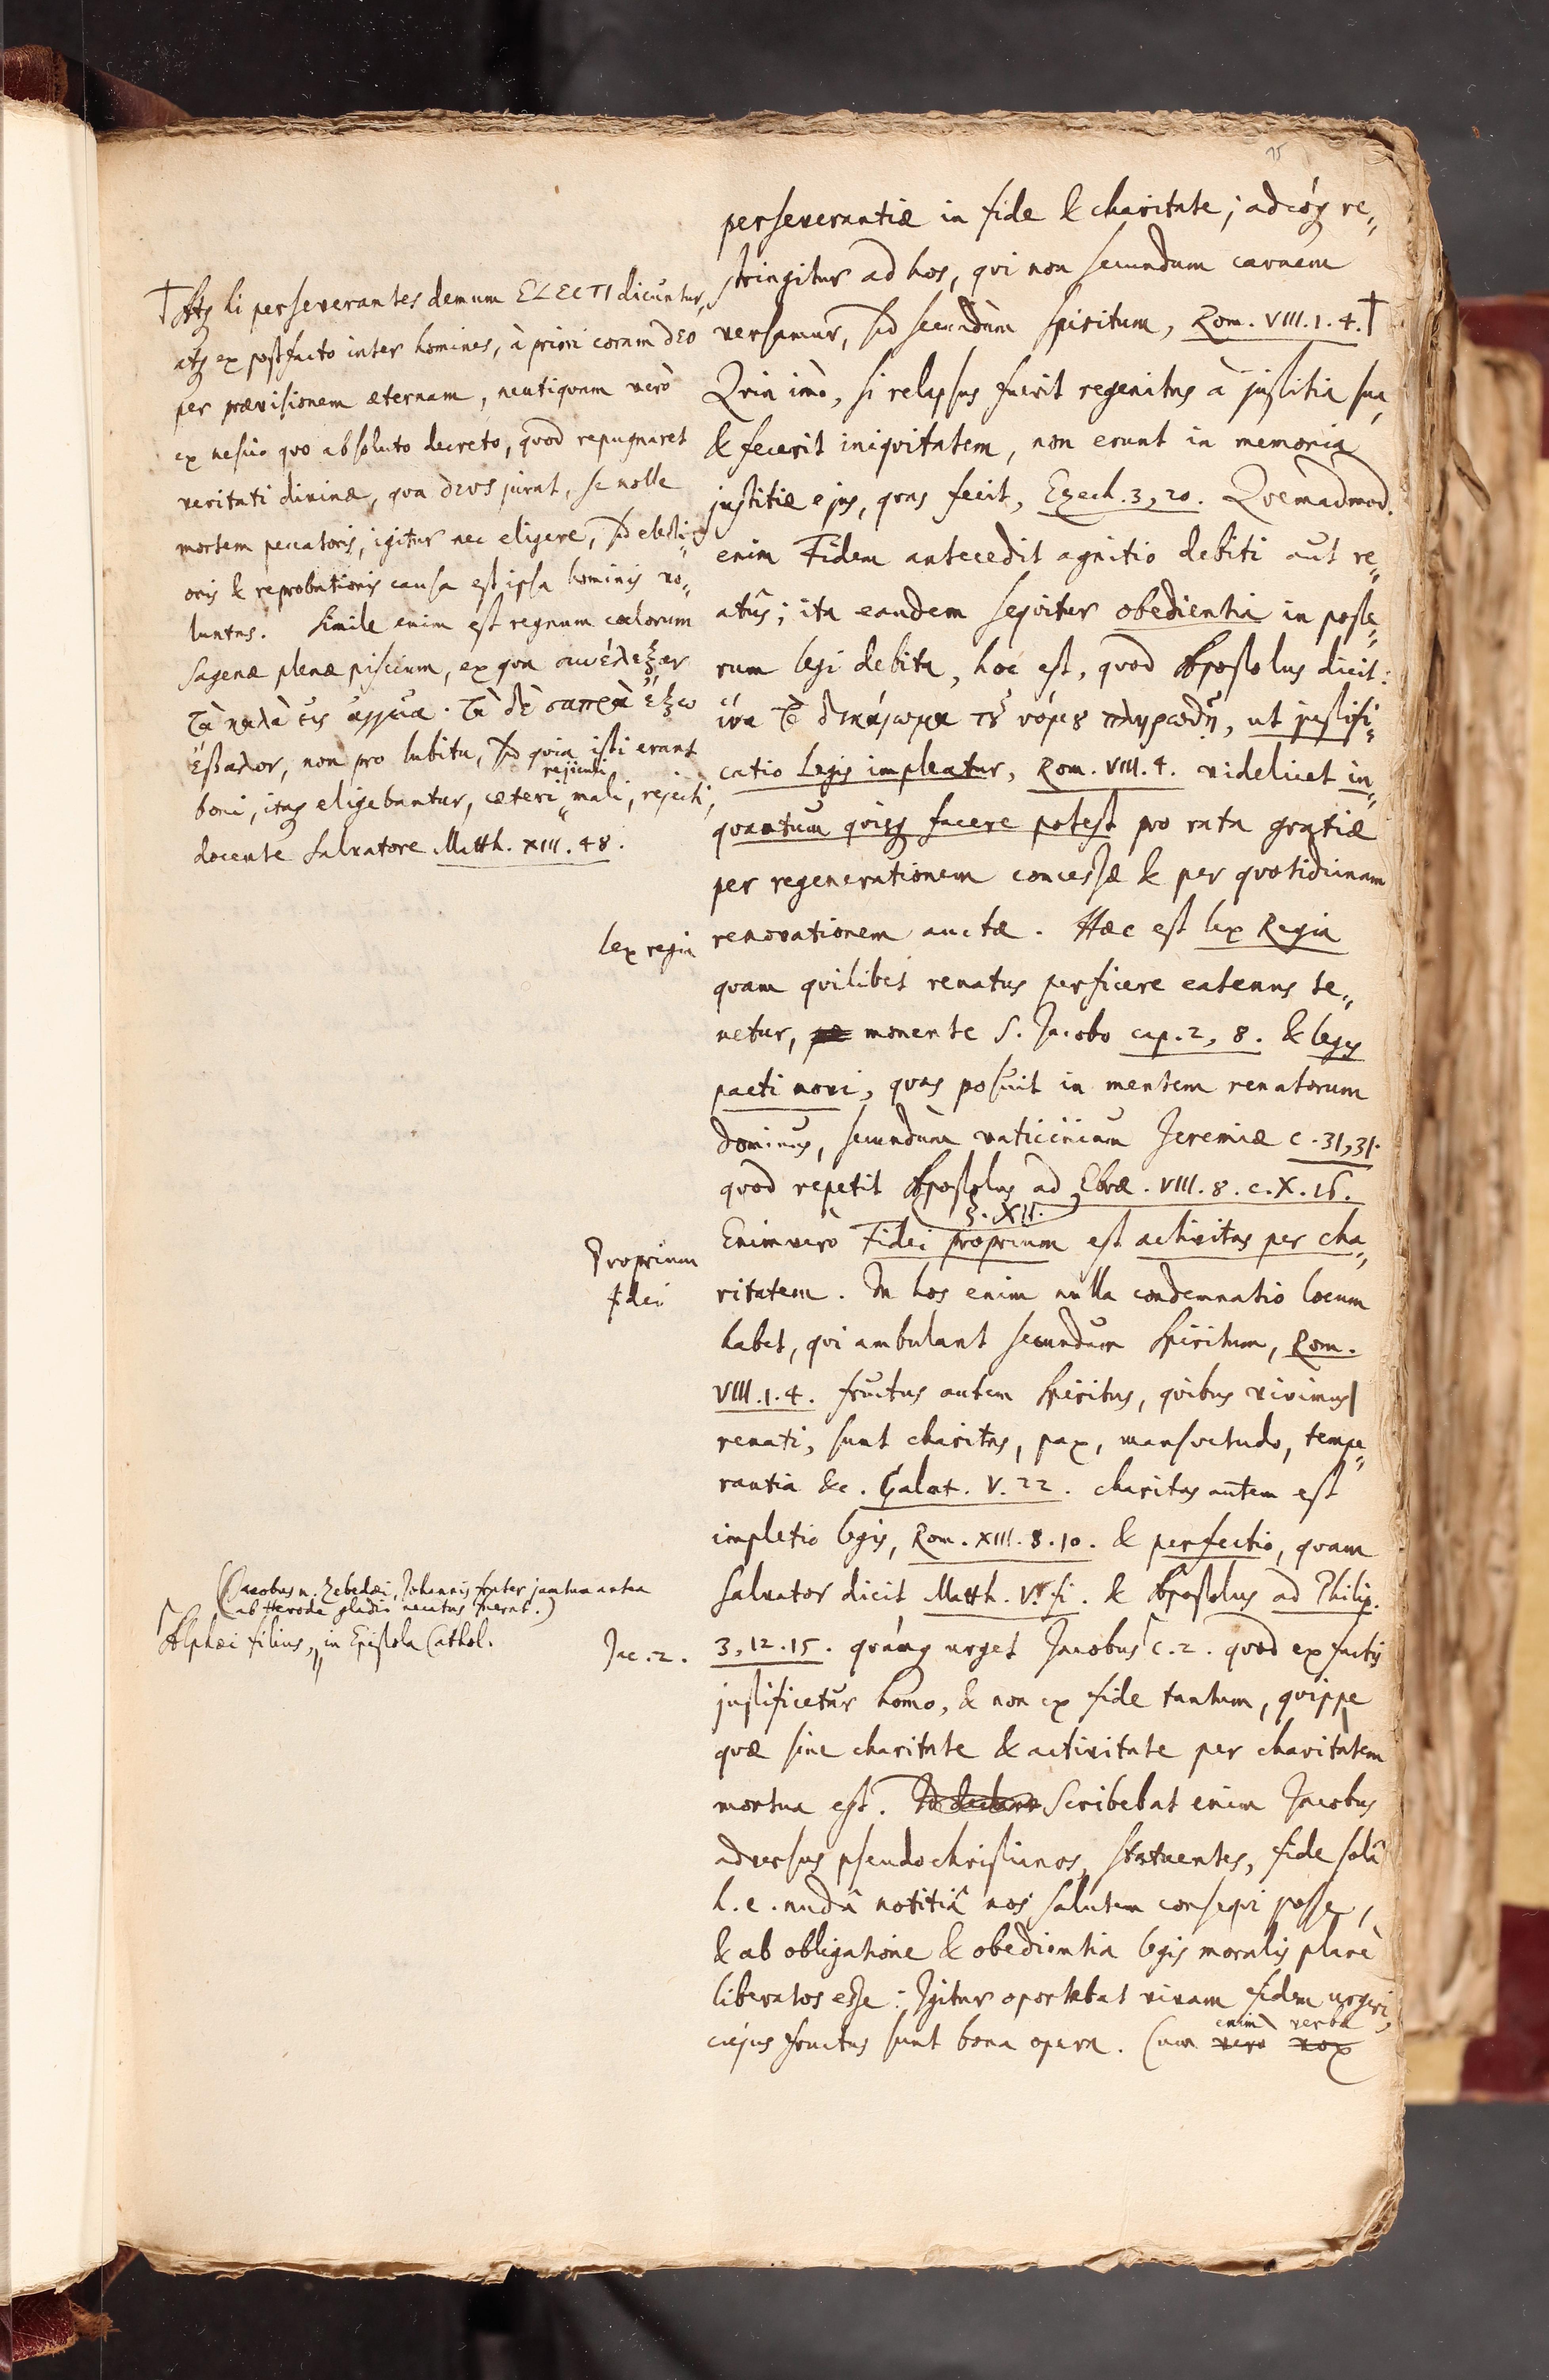 perseverantiæ in fide & charitate; adeóq re„
stringitur ad hos, qvi non secundum carnem
versamur, sed secundùm spiritum, Rom. VIII. 1. 4. †
Qvin imò, si relapsus fuerit regenitus à justitia sua,
& fecerit iniqvitatem, non erunt in memoria
justitiæ ejus, qvas fecit, Ezech. 3, 20. Qvemadmod.
enim Fidem antecedit agnitio debiti aut re„
atûs; ita eandem seqvitur obedientia in poste„
rum legi debita, hoc est, qvod Apostolus dicit:
ἵνα τὸ δικαίωμα τοῦ νόμου πληρωθῇ, ut justifi„
catio Legis impleatur, Rom. VIII. 4. videlicet in„
qvantum qvisq facere potest pro rata gratiæ
per regenerationem concessæ & per qvotidianam
renovationem auctæ. Hæc est lex Regia
qvam qvilibet renatus perficere eatenus te„
netur, monente S. Jacobo cap. 2, 8. & leges
pacti novi, qvas posuit in mentem renatorum
Dominus, secundùm vaticinium Jeremiæ c. 31, 31.
qvod repetit Apostolus ad Ebræ. VIII. 8. c. X. 16.
§. XII.
Enimverò Fidei proprium est activitas per cha„
ritatem. In hos enim nulla condemnatio locum
habet, qvi ambulant secundum spiritum, Rom.
VIII. 1. 4. fructus autem spiritus, qvibus vivimus
renati, sunt charitas, pax, mansvetudo, tempe„
rantia &c. Galat. V. 22. charitas autem est
impletio legis, Rom. XIII. 8. 10. & perfectio, qvam
Salvator dicit Matth. V. fi. & Apostolus ad Philip.
3, 12. 15. qvámq urget Jacobus c. 2. qvod ex factis
justificetur homo, & non ex fide tantum, qvippe
qvæ sine charitate & activitate per charitatem
mortua est. Scribebat enim Jacobus
adversus pseudochristianos, statuentes, fide solâ
h. e. nudâ notitiâ nos salutem conseqvi posse,
& ab obligatione & obedientia legis moralis planè
liberatos esse: Igitur oportebat vivam fidem urgeri,
cujus fructus sunt bona opera. Cum vero vox
enim verba
† Atq hi perseverantes demum ELECTI dicuntur,
atq ex postfacto inter homines, à priori coram DEO
per prævisionem æternam, neutiqvam verò
ex nescio qvo absoluto decreto, qvod repugnaret
veritati divinæ, qva DEUS jurat, se nolle
mortem peccatoris, igitur nec eligere, sed electi„
onis & reprobationis causa est ipsa hominis vo„
luntas. Simile enim est regnum cœlorum
sagenæ plenæ piscium, ex qva συνέλεξαν
τὰ καλὰ εἰς ἀγγεῖα. τὰ δὲ σαπρὰ ἔξω
ἔβαλον, non pro lubitu, sed qvia isti erant
rejiculi
boni, itaq eligebantur, cæteri „ mali, rejecti,
docente Salvatore Matth. XIII. 48.
lex regia
Proprium
fidei
(Jacobus n. Zebedæi, Johannis frater jamtum antea
ab Herode gladio necatus fuerat.)
Alphæi filius, „ in Epistola Cathol.
Jac. 2.